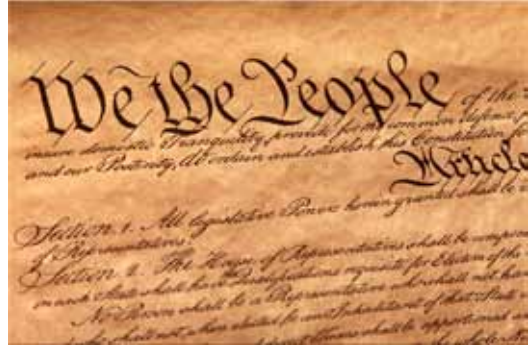 We the People of the
insure domestic Tranquility, provide for the common defence,
and our Posterity, do ordain and establish this Constitution for
Article
Section. 1. All legislative Powers herein granted shall be
of Representatives.
Section. 2. The House of Representatives shall be composed
in each State shall have Qualifications requisite for Electors of the
No Person shall be a Representative who shall not have
who shall not, when elected, be an Inhabitant of that State
shall be apportioned